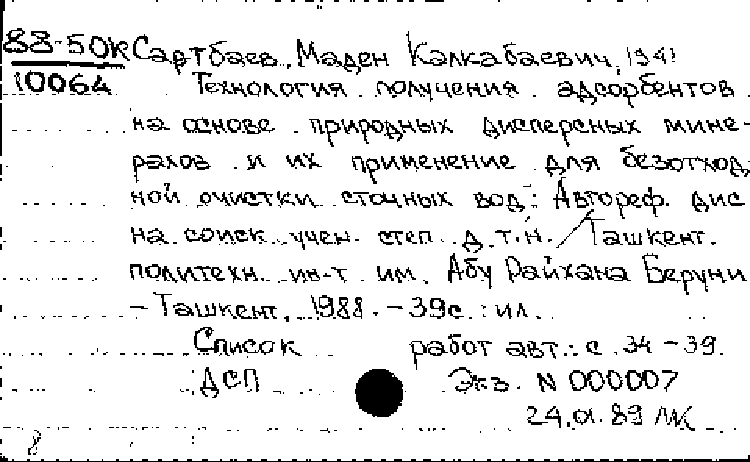 88-50К Сартбаев, Маден Калкабаевич, 1941
10064 Технология получения адсорбентов
на основе природных дисперсных мине-
ралов и их применение для безотход-
ной очистки сточных вод: Автореф. дис
на соиск. учен. степ. д.т.н. / Ташкент.
политехн. ин-т им. Абу Райхана Беруни
- Ташкент, 1988. - 39с. : ил.
Список работ авт.: с. 34-39.
ДСП Экз. N 000007
24.01.89 МК
8